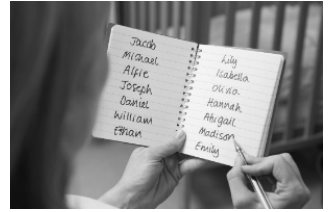 Jacob
Michael
Alfie
Joseph
Daniel
William
Ethan
Lily
Isabella
Olivia
Hannah
Abigail
Madison
Emily